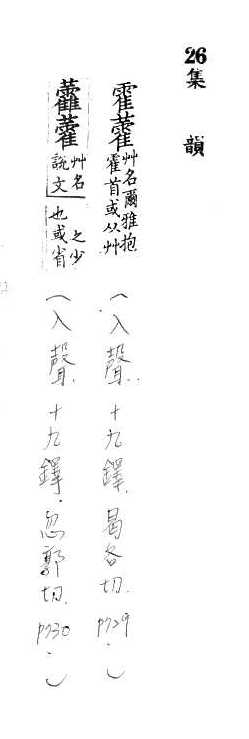 26集 韻
霍藿 艸名爾雅抱霍首或从艸 (入聲.十九鐸.曷各切.p729.)
藿 艸名說文之少也或省 (入聲.十九鐸.忽郭切.p730.)